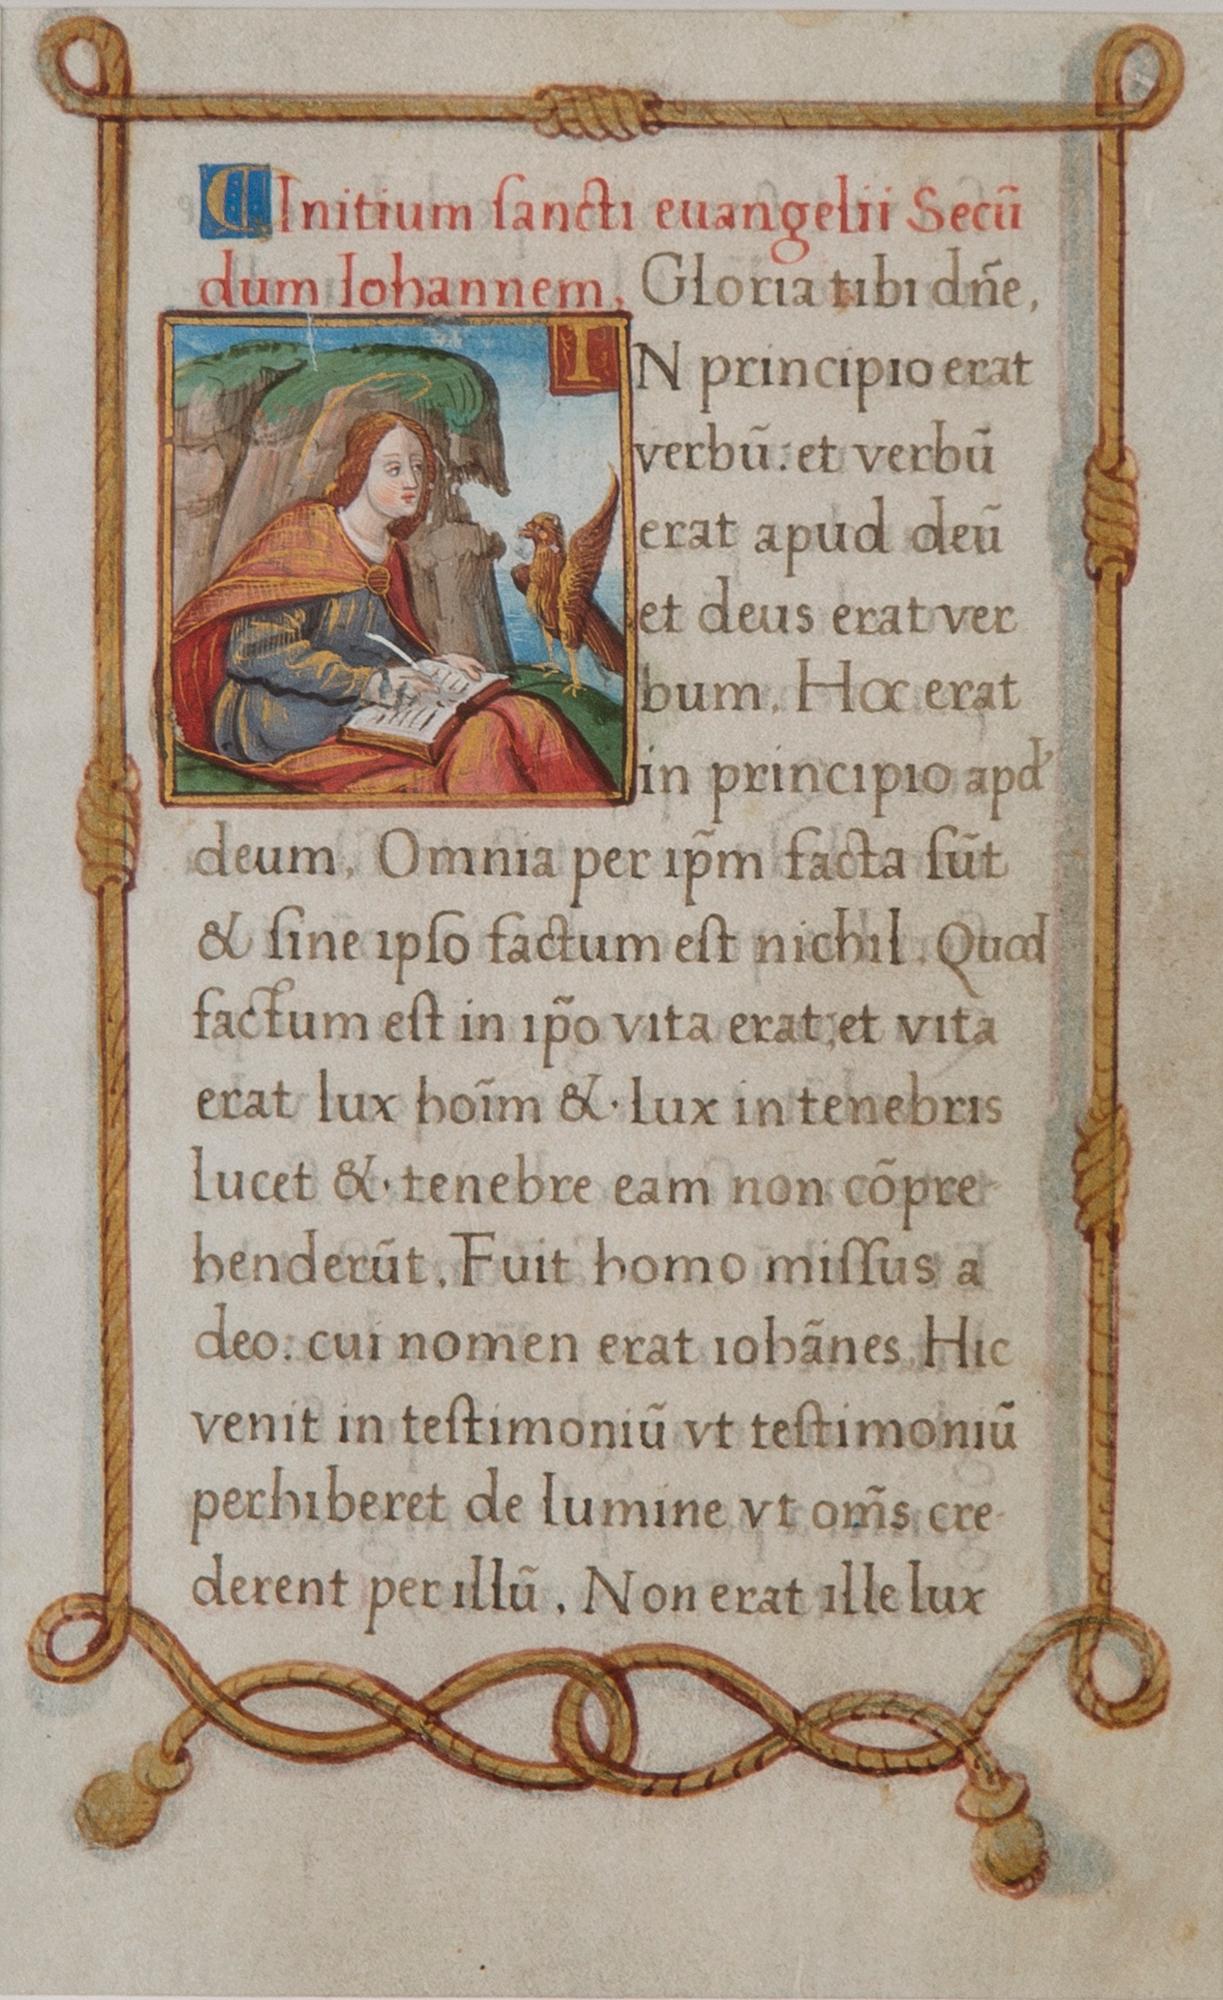 Initium ſancti euangelii Secū
dum Iohannem. Gloria tibi dñe.
IN principio erat
verbū: et verbū
erat apud deū
et deus erat ver
bum. Hoc erat
in principio apd'
deum. Omnia per ip̄m facta ſūt
& ſine ipſo factum eſt nichil. Quod
factum eſt in ip̄o vita erat: et vita
erat lux hoīm &· lux in tenebris
lucet &· tenebre eam non cōpre-
henderūt. Fuit homo miſſus a
deo: cui nomen erat iohānes. Hic
venit in teſtimoniū vt teſtimoniū
perhiberet de lumine vt om̄s cre-
derent per illū. Non erat ille lux